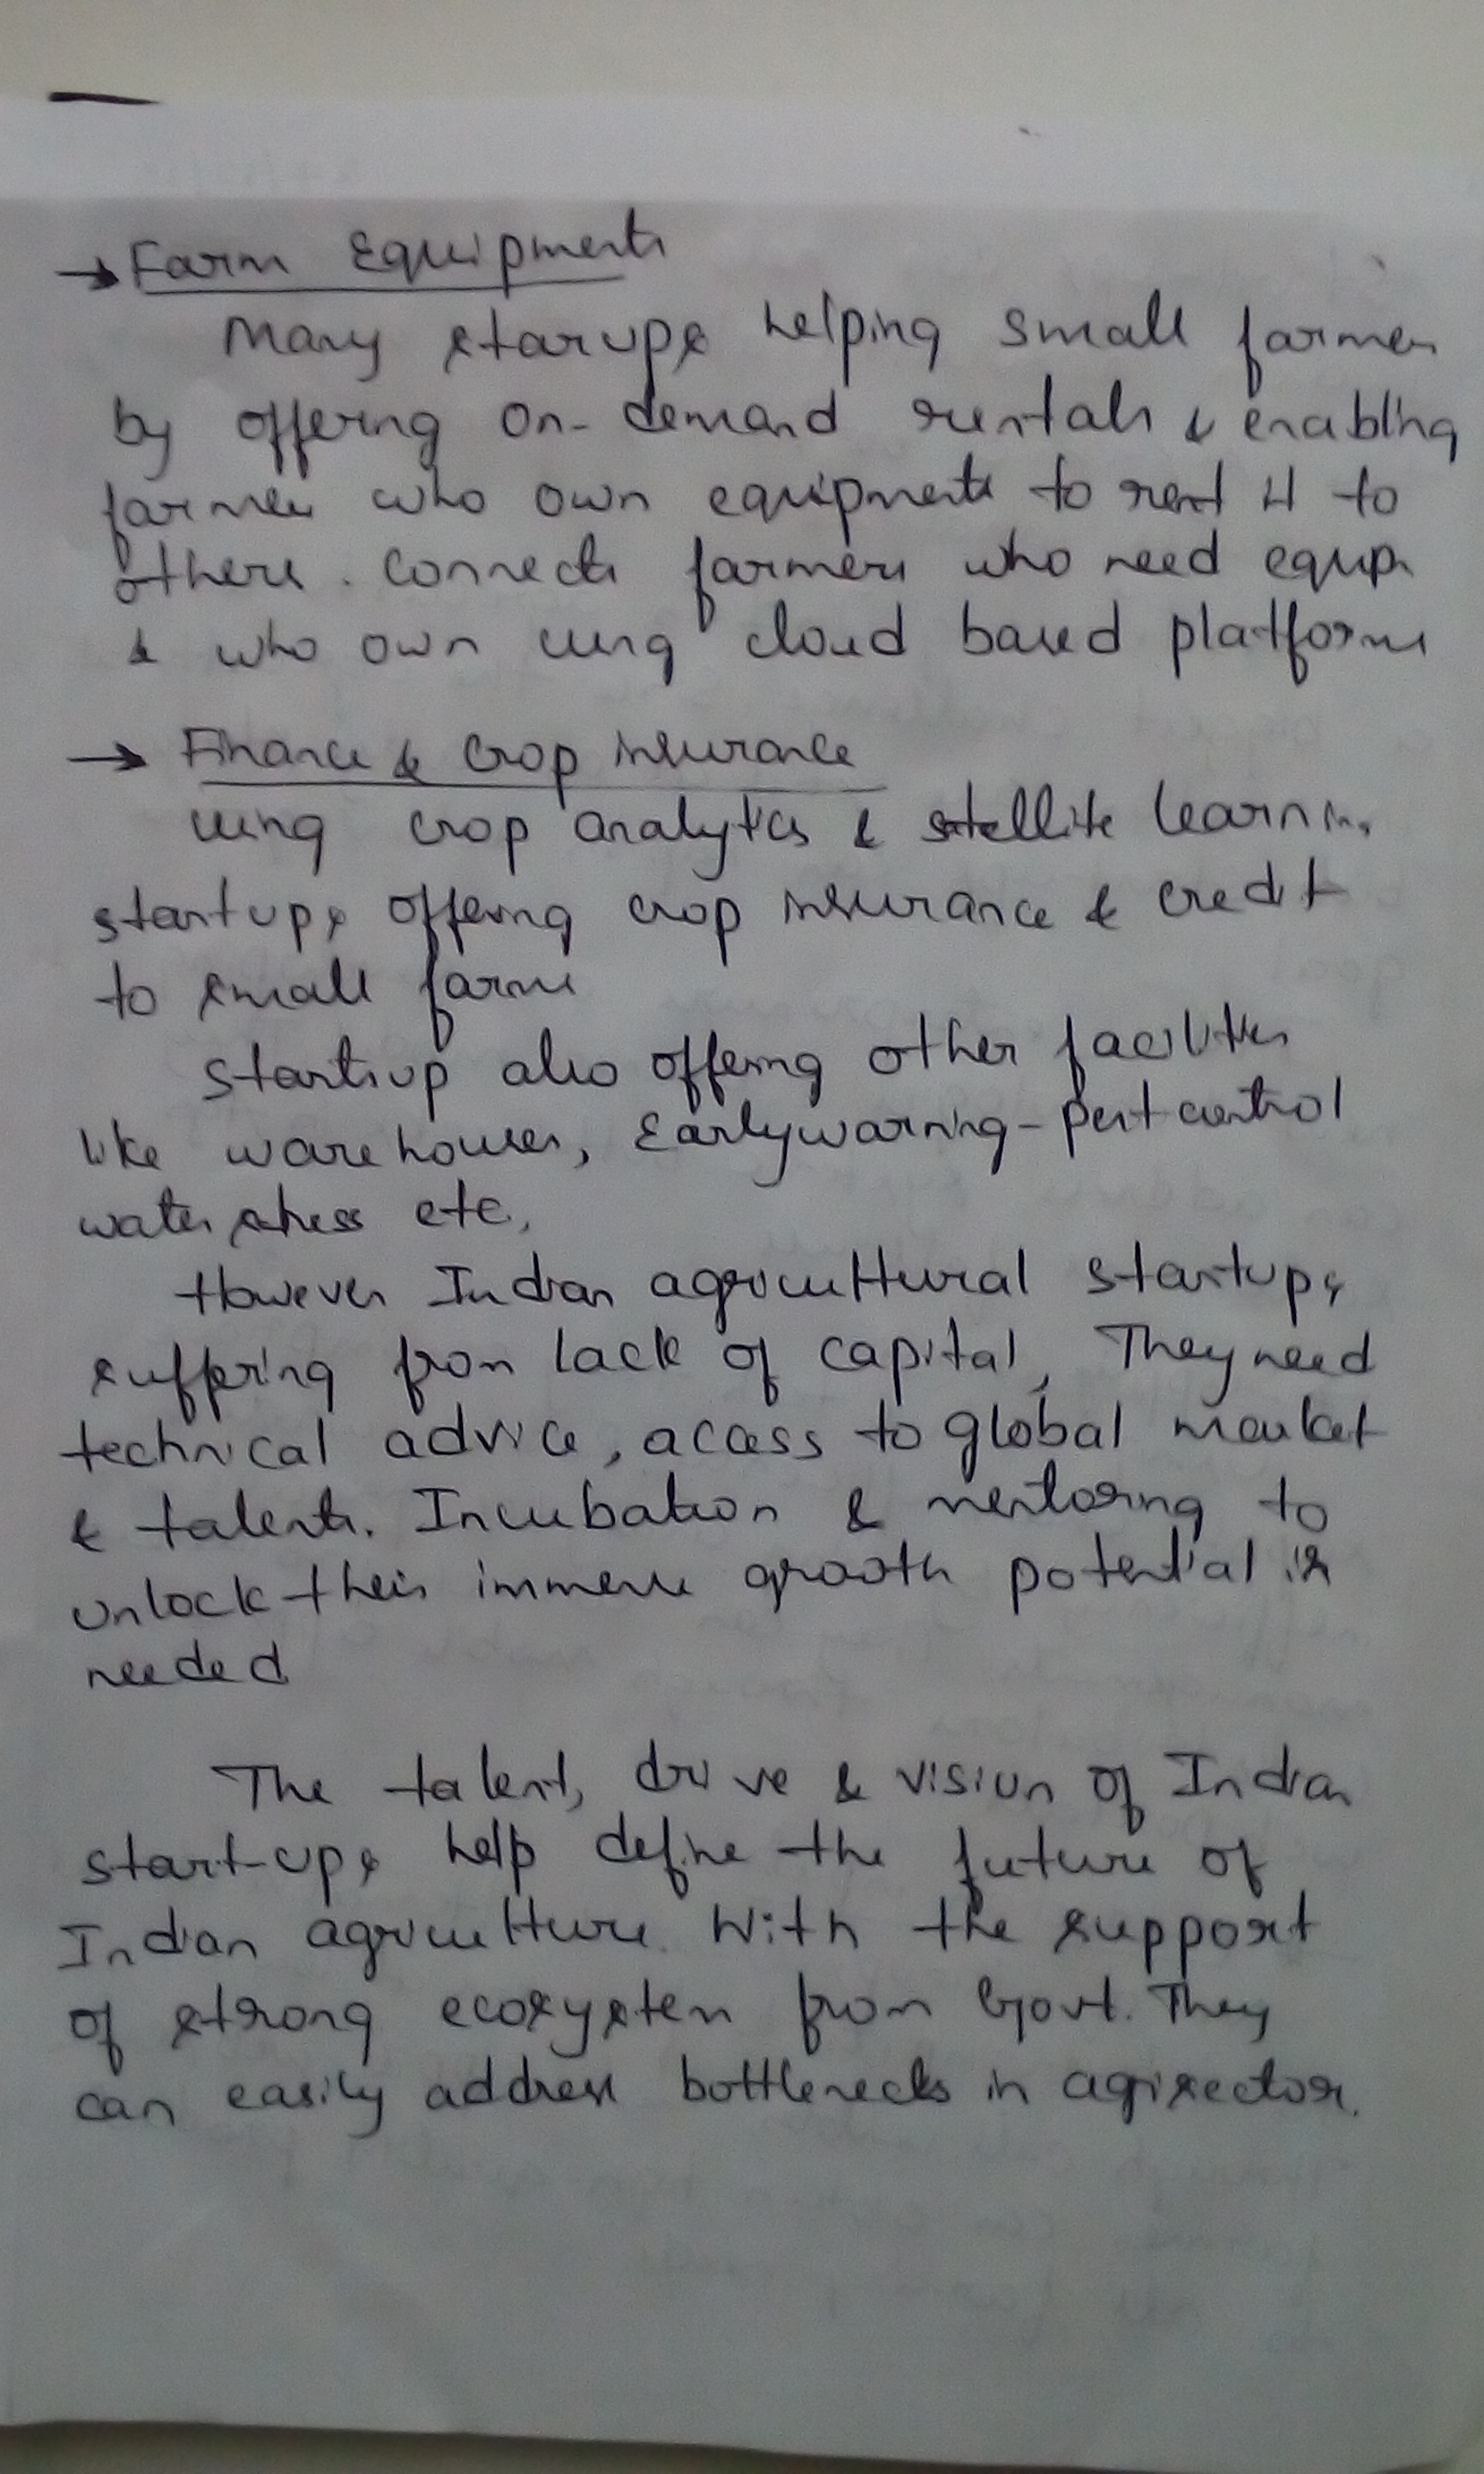 → Farm Equipments
Many starups helping small farmers
by offering on-demand rentals & enabling
farmers who own equipments to rent it to
others. Connects farmers who need equip.
& who own using cloud based platforms
→ Finance & Crop insurance
using crop analytics & stellite learning
startups offering crop insurance & credit
to small farms
Startsup also offering other facilities
like warehouses, Earlywarning-Pest control
water stress etc,
However Indian agricultural startups
suffering from lack of capital, They need
technical advice, acess to global market
& talents. Incubation & mentoring to
unlock their immense growth potential is
needed
The talent, drive & vision of Indian
start-ups help define the future of
Indian agriculture. With the support
of strong ecosystem from Govt. They
can easily address bottlenecks in agrisector.